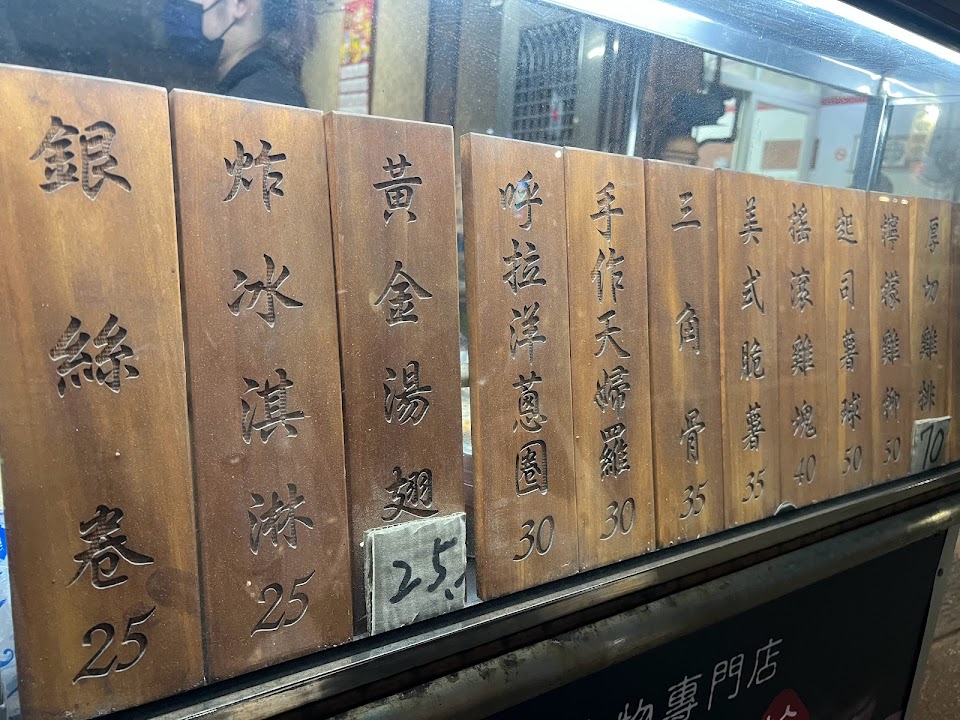 銀絲卷25
炸冰淇淋25
黃金湯翅25.
呼拉洋蔥圈30
手作天婦羅30
三角骨35
美式脆薯35
搖滾雞塊40
起司薯球50
檸檬雞柳50
厚切雞排70
物專門店